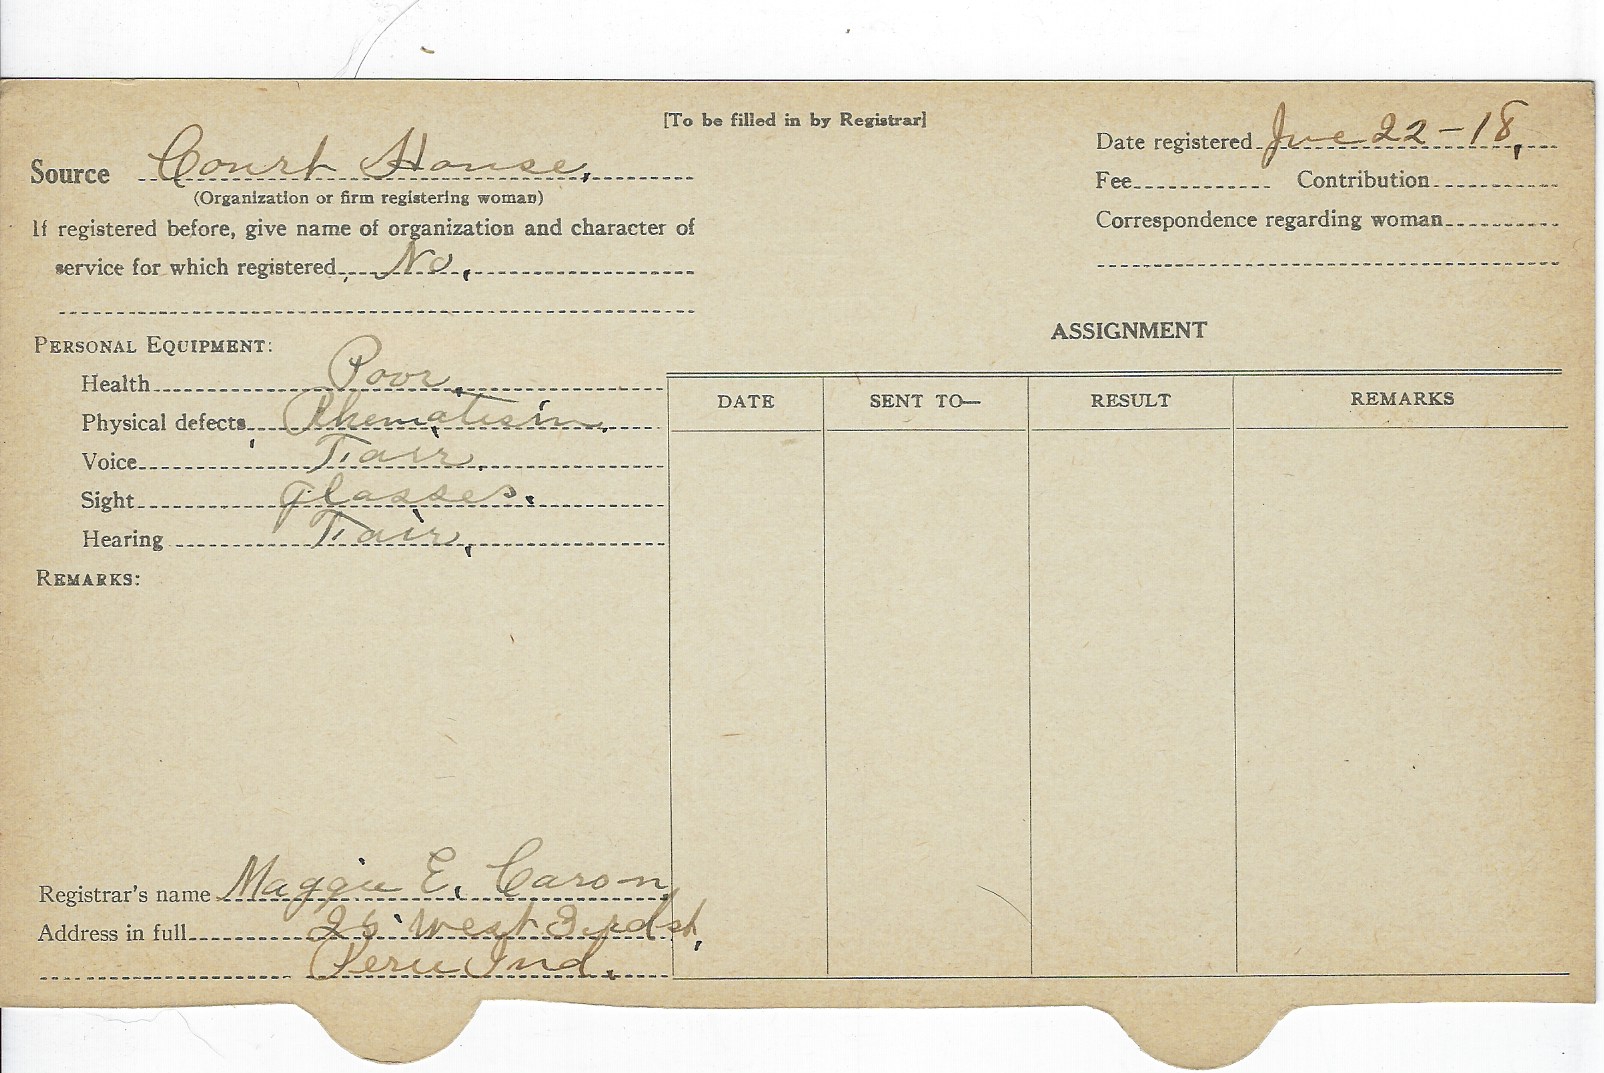 [To be filled in by Registrar]
Source Court House.
(Organization or firm registering woman)
If registered before, give name of organization and character of
service for which registered No.
Date registered Jue 22-18.
Fee Contribution
Correspondence regarding woman
PERSONAL EQUIPMENT:
Health Poor.
Physical defects Rhematism.
Voice Fair.
Sight glasses.
Hearing Fair.
REMARKS:
ASSIGNMENT
DATE SENT TO— RESULT REMARKS
Registrar's name Maggie E. Caron
Address in full West 3rd st.
Peru Ind.